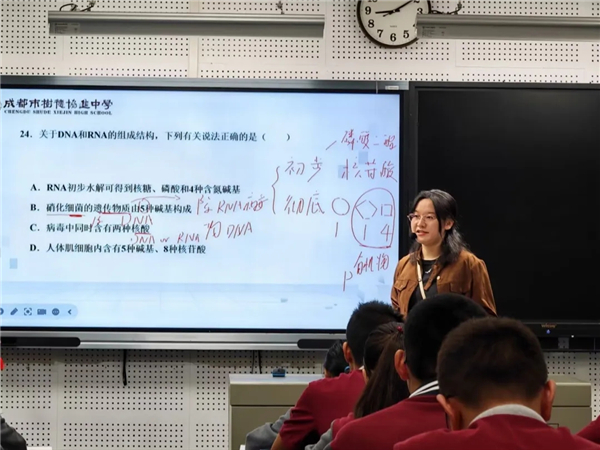 成都市树德协进中学
CHENGDU SHUDE XIEJIN HIGH SCHOOL
24．关于DNA和RNA的组成结构，下列有关说法正确的是（　　）
A．RNA初步水解可得到核糖、磷酸和4种含氮碱基
B．硝化细菌的遗传物质由5种碱基构成
C．病毒中同时含有两种核酸
D．人体肌细胞内含有5种碱基、8种核苷酸
初步 核苷酸
彻底
1 1 4
DNA
除RNA病毒
DNA or RNA 为DNA